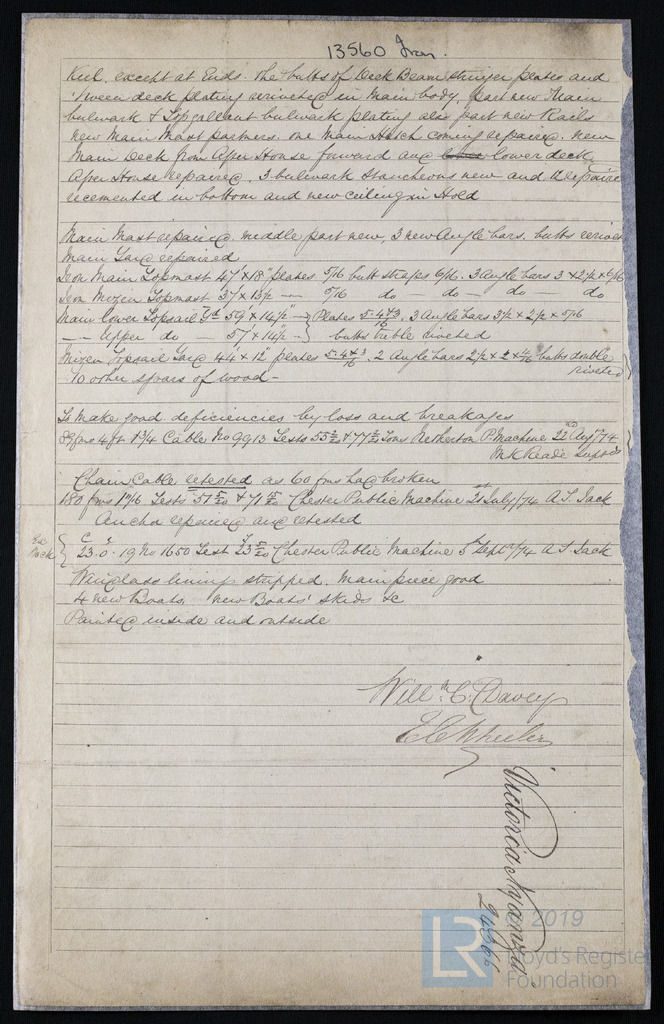 13560 Iron.
Keel. except at Ends. The butts of Deck Beam stringer plates and
'tween deck plating reriveted in main body, part new Main
bulwark & Topgallant bulwark plating also part new Rails
New Main Mast partners. one main Hatch coming repaired. New
Main Deck from After House forward and lower deck
After House repaired. 3 bulwark Stancheons new and 12 repaired
recemented in bottom and new ceiling in Hold
Main Mast repaired. middle part new, 3 new Angle bars. butts
Main Yard repaired
Iron Main Topmast 47' x 18" plates 5/16 butt straps 6/16. 3 Angle bars 3 x 2 1/2 x 6/16
Iron Mizen Topmast 37' x 13 1/2 — 5/16 do — do — do do
Main lower Topsail Yd 59' x 14 1/2" } Plates 5.4 & 3/16. 3 Angle bars 3 1/2 x 2 1/2 x 5/16
— Upper do — 57' x 14 1/2" } butts treble riveted
Mizen Topsail Yard 44 x 12" plates 5.4 & 3/16. 2 Angle bars 2 1/2 x 2 x 4/16 butts double
riveted
10 other spars of wood —
To make good deficiencies by loss and breakages
89 fms 4 ft 1 3/4 Cable No 9913 Tests 55 & 77 Tons Netherton P. Machine 22nd Augt 74
M K Reade Supt
Chain Cable retested as 60 fms had broken
180 fms Tests 51 & 71 Chester Public Machine 21st July/74 A. T. Jack
Anchor repaired and retested
23.0.19 No 1650 Test 23 Chester Public Machine 5th Sept/74 A T Jack
Ex
Stock
Windlass lining stripped. main piece good
4 new Boats. new Boats' skids &c
Painted inside and outside
Willm. C. Davey
E C Wheeler
Victoria Nyanza
© 2019
LR
Lloyd's Register
Foundation